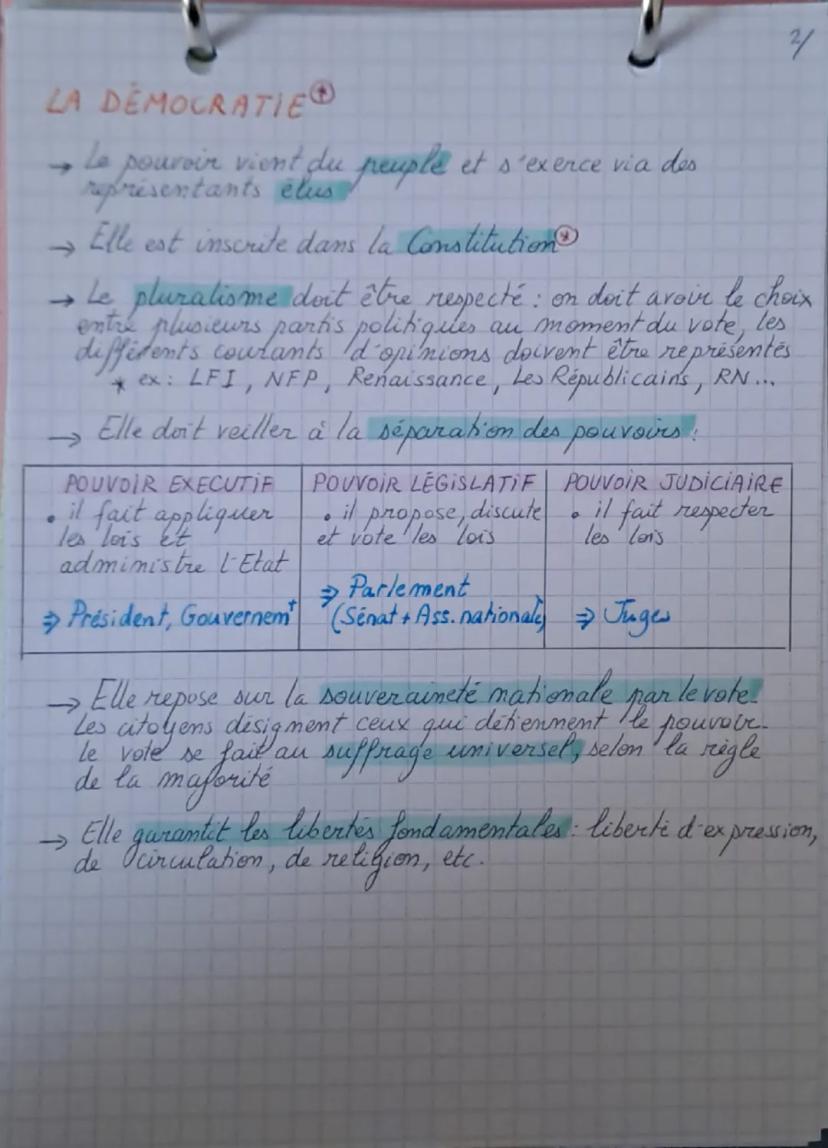 2/
LA DÉMOCRATIE
→ Le pouvoir vient du peuple et s'exerce via des
représentants élus
→ Elle est inscrite dans la Constitution*
→ Le pluralisme doit être respecté : on doit avoir le choix
entre plusieurs partis politiques au moment du vote, les
différents courants d'opinions doivent être représentés
* ex : LFI, NFP, Renaissance, Les Républicains, RN...
→ Elle doit veiller à la séparation des pouvoirs :
POUVOIR EXECUTIF
• il fait appliquer
les lois et
administre l'Etat
⇒ Président, Gouvernemt
POUVOIR LÉGISLATIF
• il propose, discute
et vote les lois
⇒ Parlement
(Sénat + Ass. nationale)
POUVOIR JUDICIAIRE
• il fait respecter
les lois
⇒ Juges
→ Elle repose sur la souveraineté nationale par le vote.
Les citoyens désignent ceux qui détiennent le pouvoir.
Le vote se fait au suffrage universel, selon la règle
de la majorité
→ Elle garantit les libertés fondamentales : liberté d'expression,
de circulation, de religion, etc.